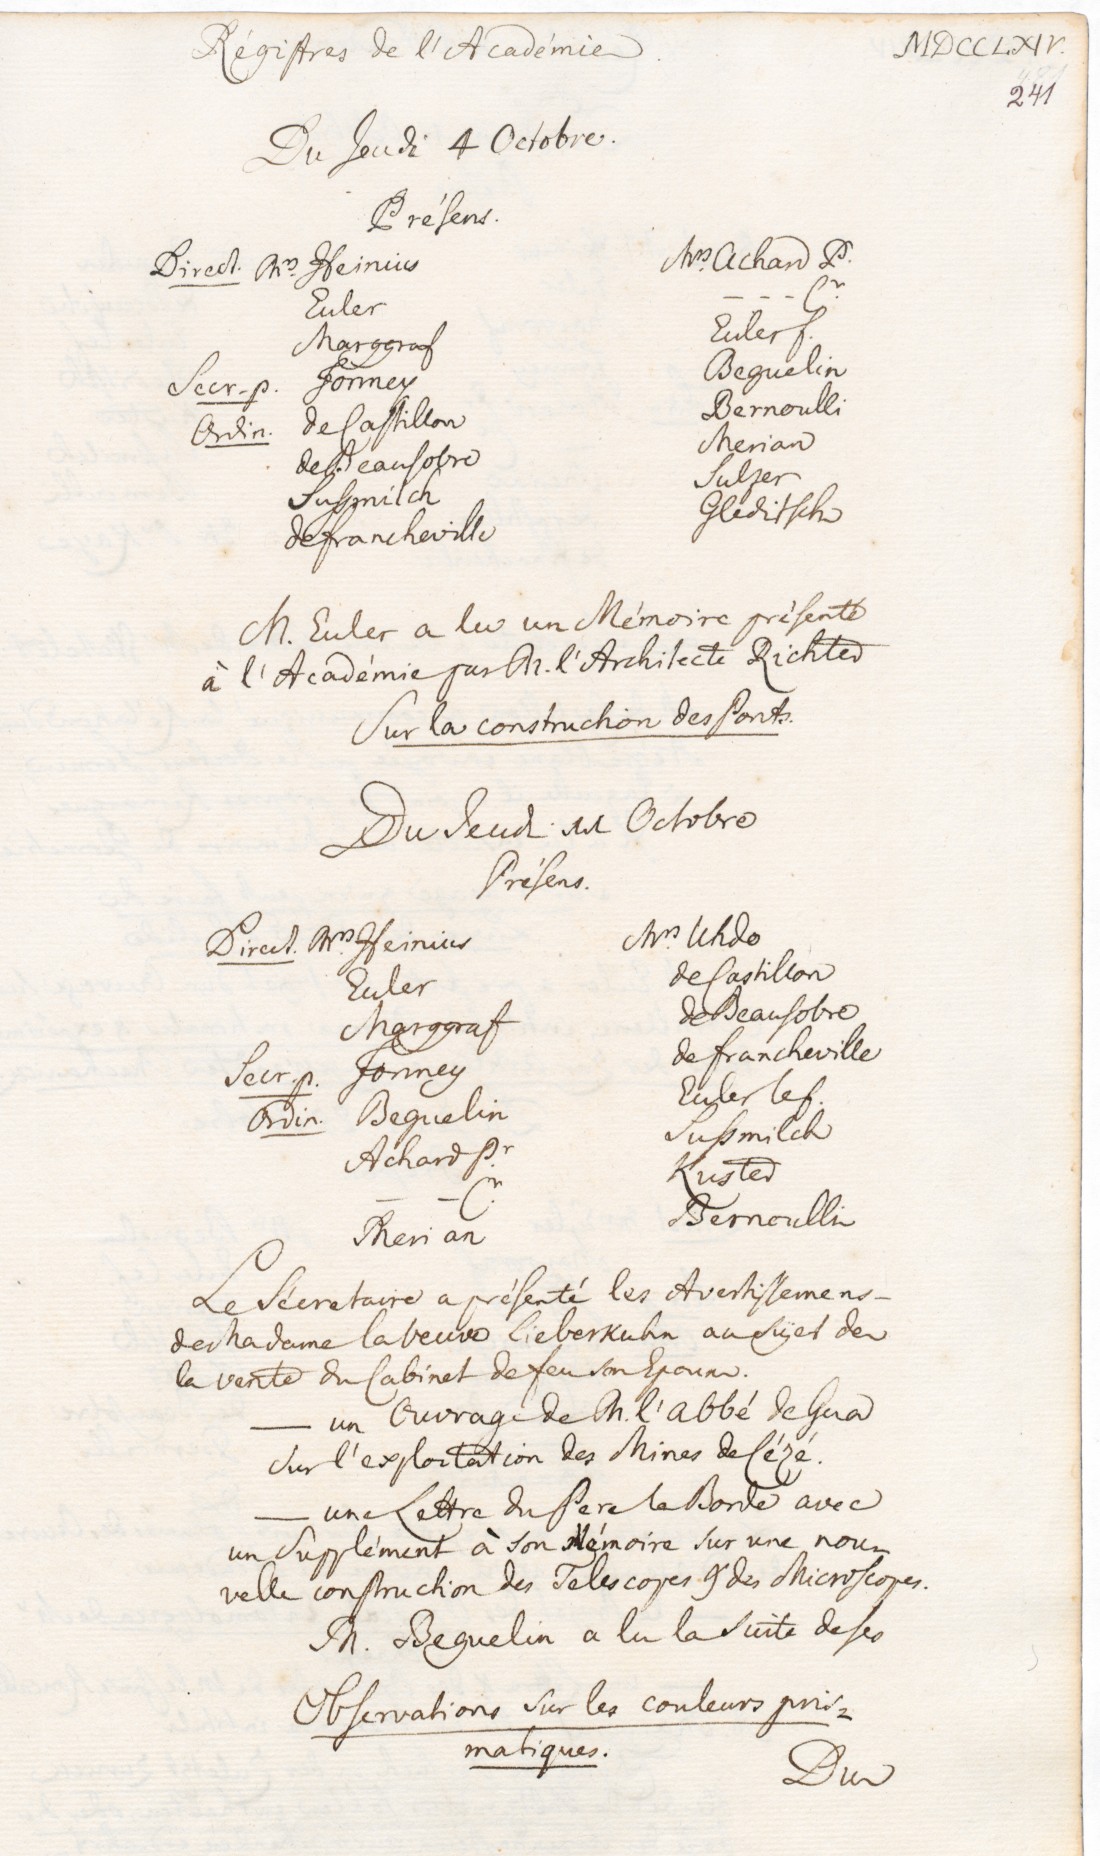 Régistres de l'Académie.
MDCCLXIV.
241
Du Jeudi 4 Octobre.
Présens.
Direct. Mrs. Heinius
Euler
Marggraf
Secr. p. Formey
Ordin. de Castillon
de Beausobre
Sußmilch
de francheville
Mrs. Achard P.
- - - Cr.
Euler f.
Beguelin
Bernoulli
Merian
Sulzer
Gleditsch
M. Euler a lu un Mémoire présenté
à l'Académie par M. l'Architecte Richter
Sur la construction des Ponts.
Du Jeudi 11 Octobre
Présens.
Direct. Mrs. Heinius
Euler
Marggraf
Secr. p. Formey
Ordin. Beguelin
Achard Pr.
- - Cr.
Merian
Mrs. Uhdo
de Castillon
de Beausobre
de francheville
Euler le f.
Sußmilch
Kuster
Bernoulli
Le Sécretaire a présenté les Avertissemens
de Madame la veuve Lieberkuhn au sujet de
la vente du Cabinet de feu son Epoux.
— un Ouvrage de M. l'abbé de Gua
sur l'exploitation des Mines de Cézé.
— une Lettre du Pere la Borde avec
un Supplément à son Mémoire sur une nou-
velle construction des Telescopes & des Microscopes.
M. Beguelin a lu la suite de ses
Observations sur les couleurs pris-
matiques.
Du